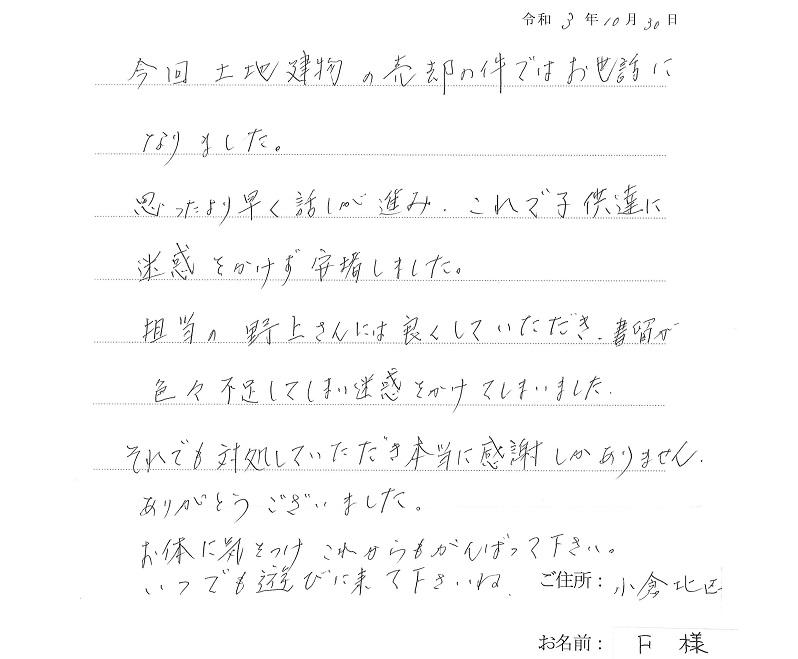 令和 3 年 10 月 30 日
今回 土地建物の売却の件ではお世話に
なりました。
思ったより早く話しが進み、これで子供達に
迷惑をかけず安堵しました。
担当の野上さんには良くしていただき、書類が
色々不足してしまい迷惑をかけてしまいました.
それでも対処していただき本当に感謝しかありません.
ありがとうございました。
お体に気をつけこれからもがんばって下さい。
いつでも遊びに来て下さいね.
ご住所: 小倉北区
お名前: F 様